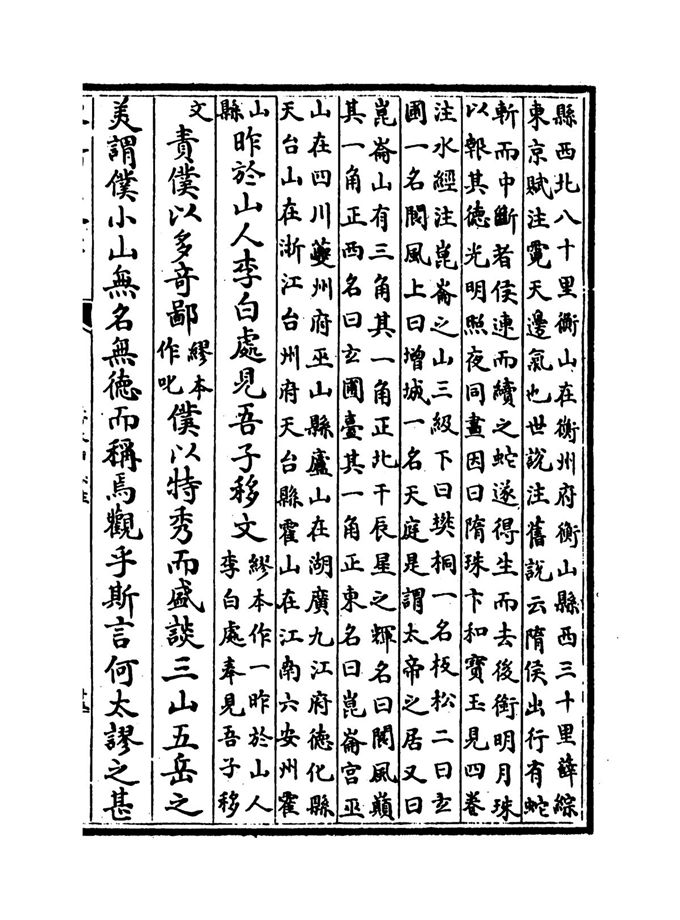 縣西北八十里衡山在衡州府衡山縣西三十里薛綜
東京賦注霓天邊氣也世說注舊說云隋侯出行有蛇
斬而中斷者侯連而續之蛇遂得生而去後銜明月珠
以報其德光明照夜同晝因曰隋珠卞和寶玉見四卷
注水經注崑崙之山三級下曰樊桐一名板松二曰玄
圃一名閬風上曰增城一名天庭是謂太帝之居又曰
崑崙山有三角其一角正北干辰星之輝名曰閬風巔
其一角正西名曰玄圃臺其一角正東名曰崑崙宮巫
山在四川夔州府巫山縣廬山在湖廣九江府德化縣
天台山在浙江台州府天台縣霍山在江南六安州霍
山
縣
昨於山人李白處見吾子移文
繆本作一昨於山人
李白處奉見吾子移
文
責僕以多奇鄙
繆本
作叱
僕以特秀而盛談三山五岳之
美謂僕小山無名無德而稱焉觀乎斯言何太謬之甚